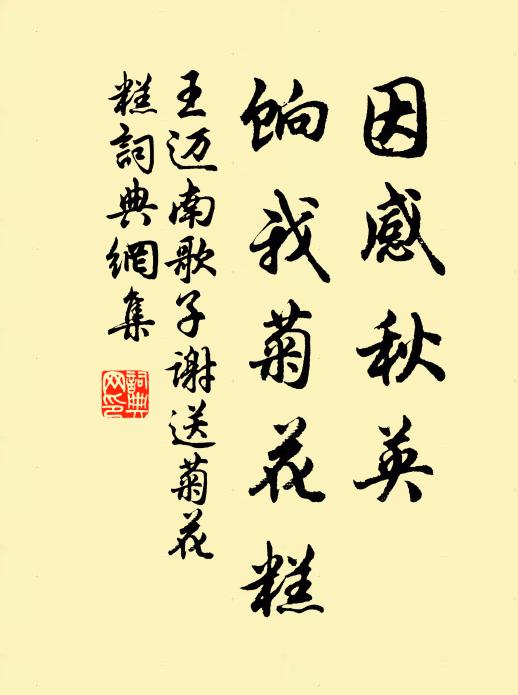 因感秋英
餉我菊花糕
王迈南歌子谢送菊花
糕詞典網集
詞典
网印